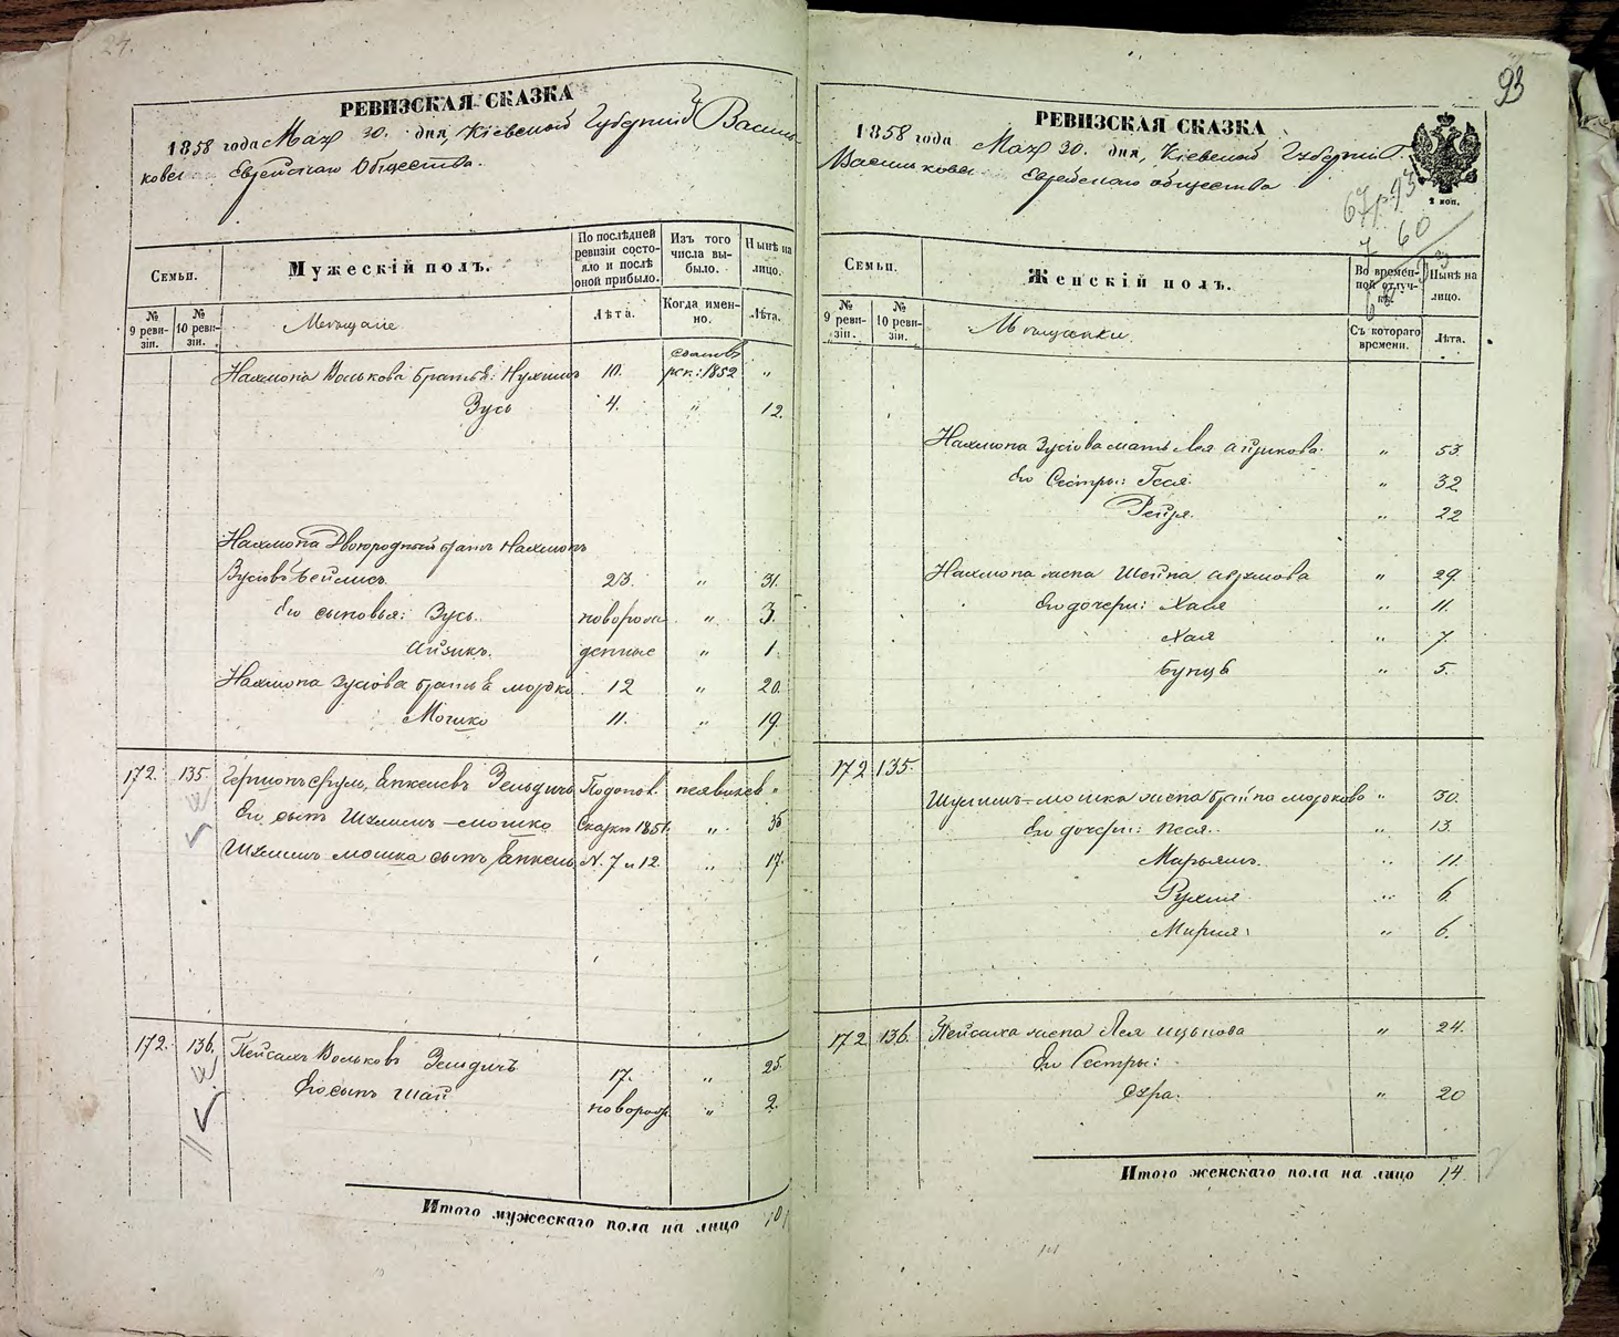 24.
РЕВИЗСКАЯ СКАЗКА
1858 года Мая 30. дня, Кіевской Губерніи Василь-
кова Еврейскаго Общества.
Семьи.
Мужескій полъ.
По послѣдней ревизіи состояло и послѣ оной прибыло.
Изъ того числа выбыло.
Нынѣ на лицо.
№ 9 ревизіи.
№ 10 ревизіи.
Мещане
Лѣта.
Когда именно.
Лѣта.
Нахмона Волькова братья: Нухимъ 10. рек.: 1852 "
Зусь 4. " 12.
Нахмона Двоюродный братъ Нахмонъ
Зусіовъ Бейлисъ 23. " 31.
Его сыновья: Зусь. новорож " 3.
Айзикъ. денные " 1.
Нахмона Зусіова братья Мордко 12 " 20.
Мошко 11. " 19.
172. 135. Сруль, Янкелевъ Зельдичъ Подопол. неявивъ "
Его сынъ Шулимъ-Мошко Сказки 1851. " 35
Шулимъ Мошка сынъ Янкель N. 7 и 12. " 17.
172. 136. Пейсахъ Вольковъ Зельдичъ 17. " 25.
Его сынъ Шай новорож. " 2.
Итого мужескаго пола на лицо 10
93
РЕВИЗСКАЯ СКАЗКА
1858 года Мая 30. дня, Кіевской Губерніи
Василькова Еврейскаго общества
2 коп.
67р. 93
7 60
Семьи.
Женскій полъ.
Во временной отлучкѣ.
Нынѣ на лицо.
№ 9 ревизіи.
№ 10 ревизіи.
Мещанки
Съ котораго времени.
Лѣта.
Нахмона Зусіова мать Лея Айзикова " 53.
Его Сестры: Гася " 32
Рейзя. " 22
Нахмона жена Шейна Абрамова " 29.
Его дочери: Хася " 11.
Хая " 7.
Бунця " 5.
172 135.
Шулимъ-Мошка жена Брайна Мордкова " 30.
Его дочери: Песя. " 13.
Марьямъ. " 11.
Рухля " 6.
Мирля " 6.
172 136. Пейсаха жена Лея Ицькова " 24.
Его Сестры:
Сура. " 20
Итого женскаго пола на лицо 14.